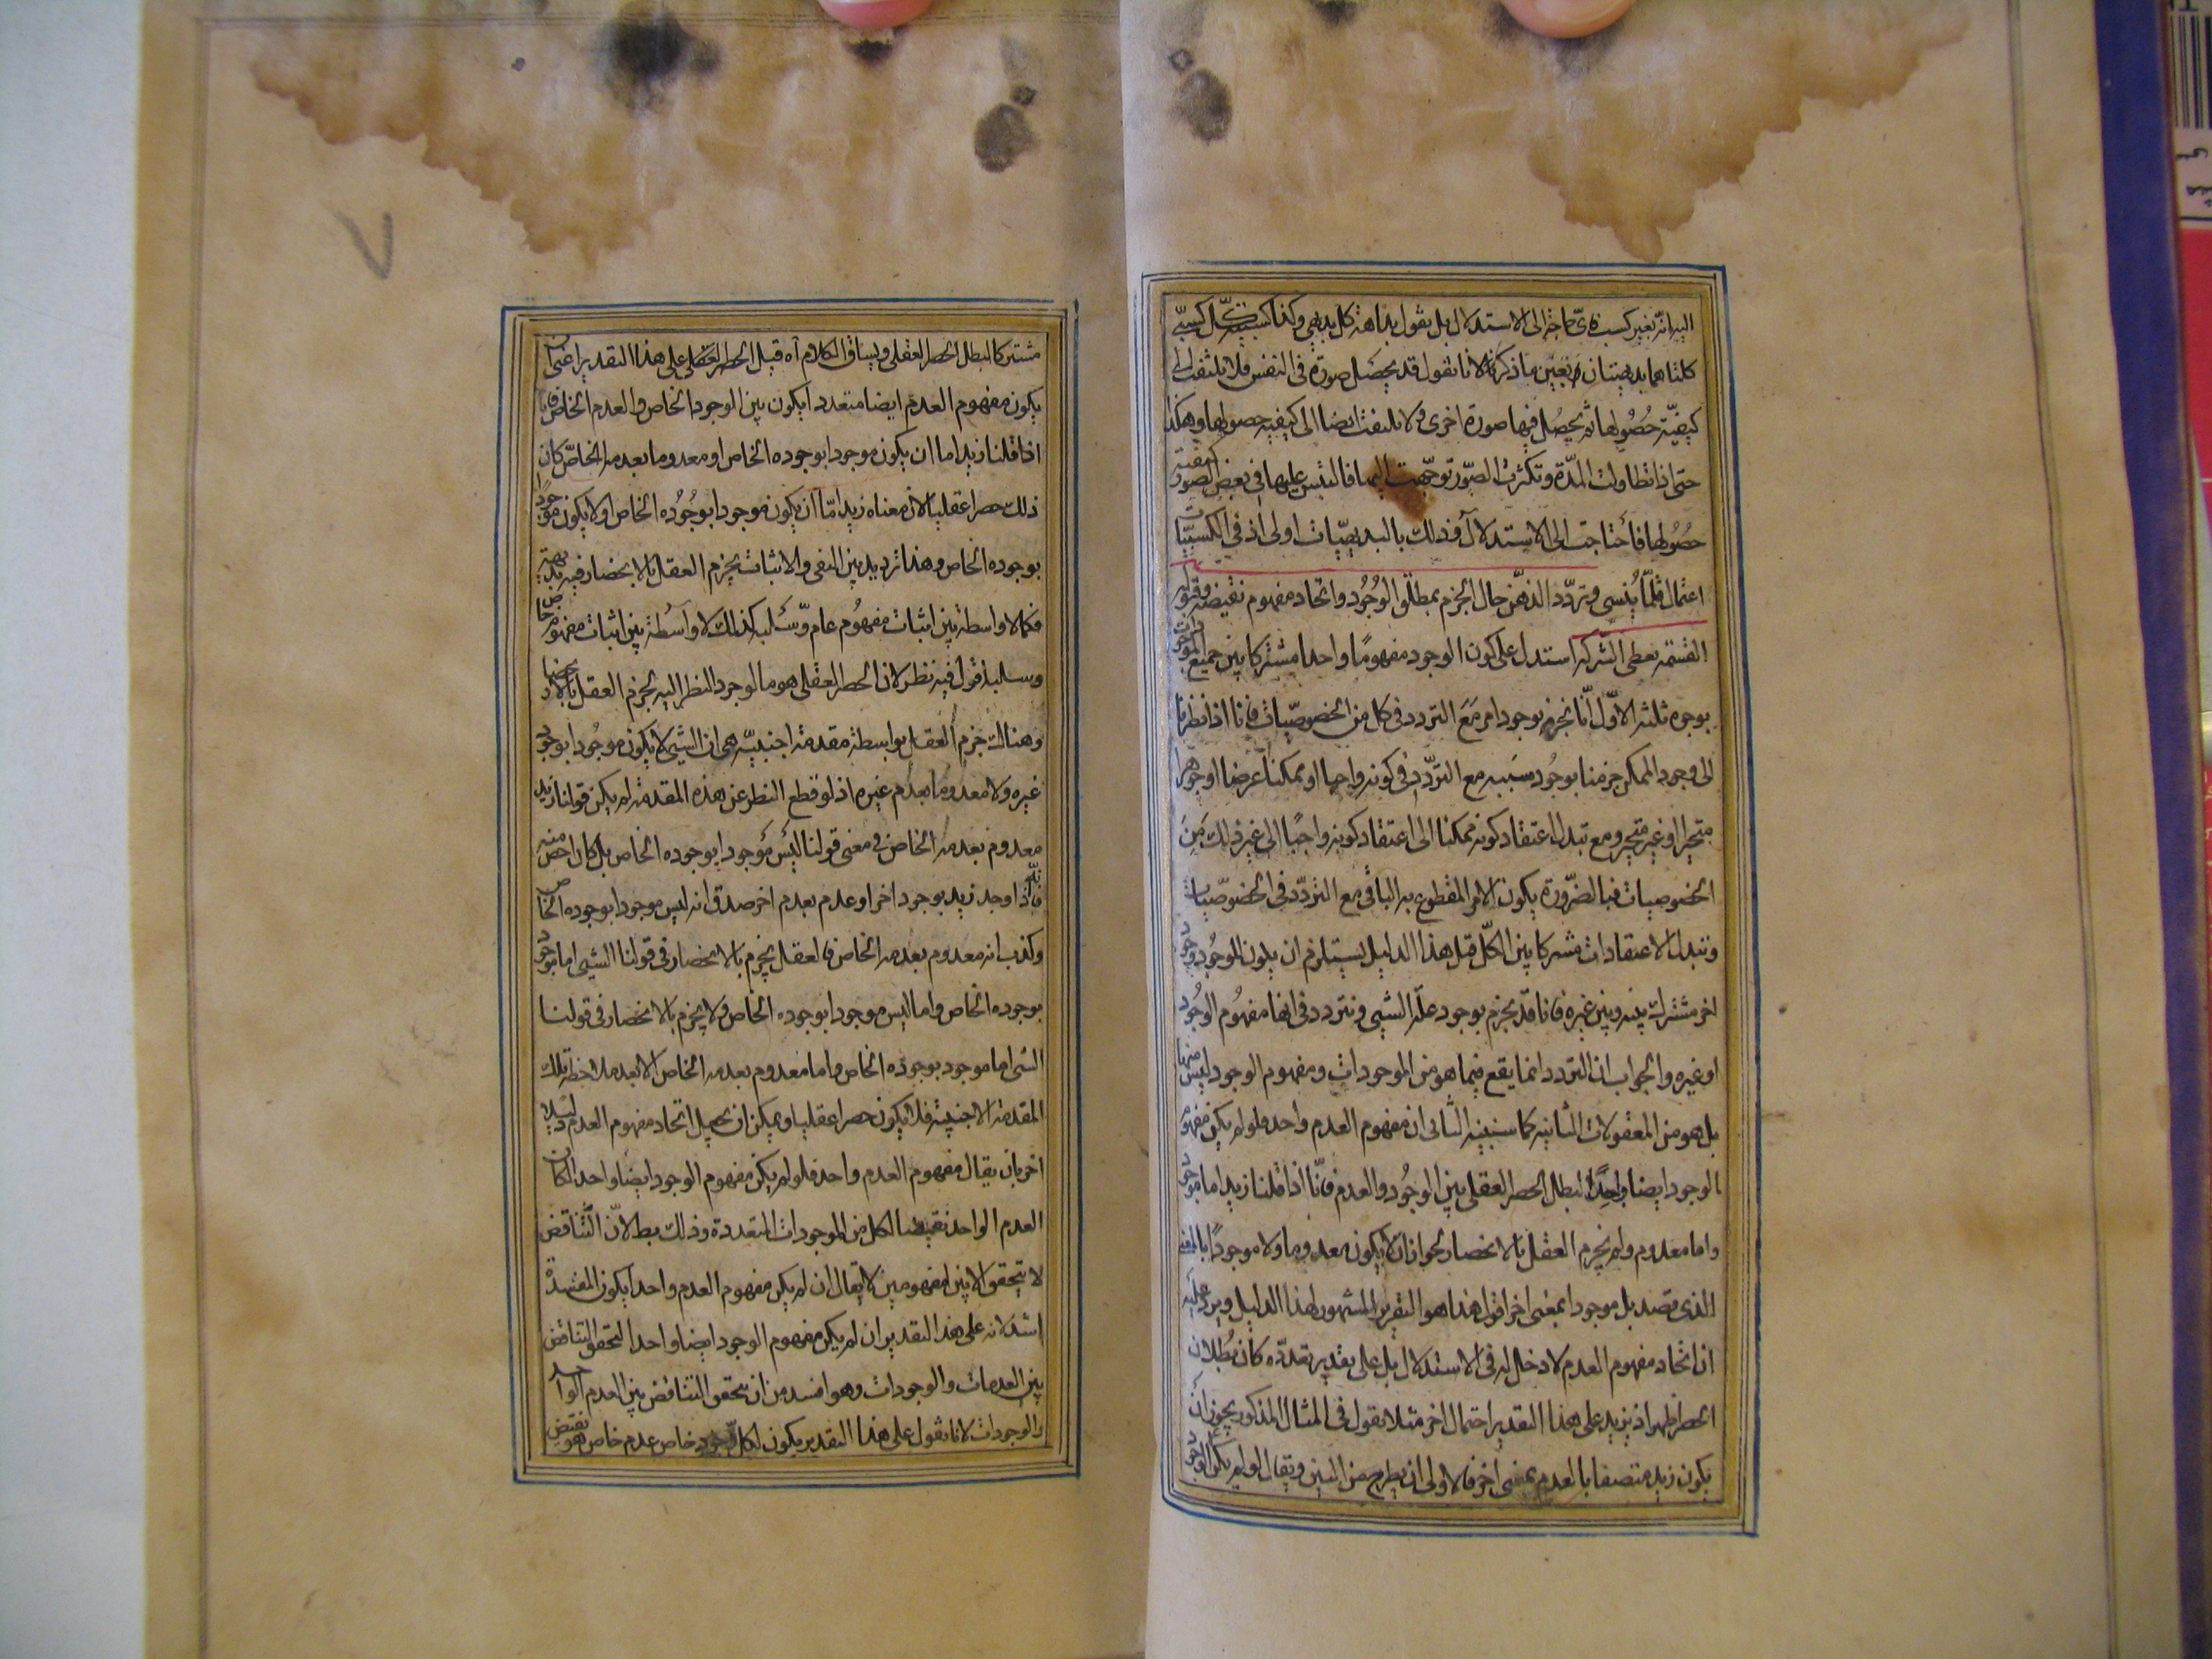 اليه انه بغير كسب فاى حاجة الى الاستدلال بل نقول بداهة كل بديهى وكذا كسبية كل كسبى
كلتاهما بديهيتان بعين ما ذكرنا لانا نقول قد يحصل صورة فى النفس فلا يلتفت الى
كيفية حصولها ثم يحصل فيها صورة اخرى ولا يلتفت ايضا الى كيفية حصولها وهكذا
حتى اذا تطاولت المدة وتكثرت الصور توجهت اليها فالتبس عليها فى بعض الصور كيفية
حصولها فاحتاجت الى الاستدلال وذلك بالبديهيات اولى اذ فى الكسبيات
اعتمال قلما ينسى وتردد الذهن حال الجزم بمطلق الوجود واتحاد مفهوم نقيضه وقبوله
القسمة يعطى الشركة استدل على كون الوجود مفهوما واحدا مشتركا بين جميع الموجودات
بوجوه ثلثة الاول انا نجزم بوجود امر مع التردد فى كل من الخصوصيات فانا اذا نظرنا
الى وجود الممكن جزمنا بوجود سببه مع التردد فى كونه واجبا او ممكنا عرضا او جوهرا
متحيزا او غير متحيز ومع تبدل اعتقاد كونه ممكنا الى اعتقاد كونه واجبا الى غير ذلك من
الخصوصيات فبالضرورة يكون الامر المقطوع به الباقى مع التردد فى الخصوصيات
وتبدل الاعتقادات مشتركا بين الكل قيل هذا الدليل يستلزم ان يكون للوجود وجود
اخر مشترك بينه وبين غيره فانا قد نجزم بوجود علة الشيى ونتردد فى انها مفهوم الوجود
او غيره والجواب ان التردد انما يقع فيما هو من الموجودات ومفهوم الوجود ليس منها
بل هو من المعقولات الثانية كما سنبينه الثانى ان مفهوم العدم واحد فلو لم يكن مفهوم
الوجود ايضا واحدا لبطل الحصر العقلى بين الوجود والعدم فانا اذا قلنا زيد اما موجود
واما معدوم ولم يجزم العقل بالانحصار لجواز ان لا يكون معدوما ولا موجودا بالمعنى
الذى قصد بل موجودا بمعنى اخر اقول هذا هو التقرير المشهور لهذا الدليل ويرد عليه
ان اتحاد مفهوم العدم لا دخل له فى الاستدلال بل على تقدير تعدده كان بطلان
الحصر اظهر اذ يزيد على هذا التقدير احتمال اخر مثلا نقول فى المثال المذكور يجوز ان
يكون زيد متصفا بالعدم بمعنى اخر فالاولى ان يطرح من البين ويقال لو لم يكن الوجود
مشتركا لبطل الحصر العقلى ويساق الكلام اه قيل الحصر العقلى على هذا التقدير اعنى ان
يكون مفهوم العدم ايضا متعددا يكون بين الوجود الخاص والعدم الخاص فانا
اذا قلنا زيد اما ان يكون موجودا بوجوده الخاص او معدوما بعدمه الخاص كان
ذلك حصرا عقليا لان معناه زيد اما ان يكون موجودا بوجوده الخاص او لا يكون موجودا
بوجوده الخاص وهذا ترديد بين النفى والاثبات يجزم العقل بالانحصار فيه بديهة
فكما لا واسطة بين اثبات مفهوم عام وسلبه كذلك لا واسطة بين اثبات مفهوم خاص
وسلبه اقول فيه نظر لان الحصر العقلى هو ما لو جرد النظر اليه يجزم العقل بالانحصار
وهناك جزم العقل بواسطة مقدمة اجنبية هى ان الشيى لا يكون موجودا بوجود
غيره ولا معدوما بعدم غيره اذ لو قطع النظر عن هذه المقدمة لم يكن قولنا زيد
معدوم بعدمه الخاص فى معنى قولنا ليس موجودا بوجوده الخاص بل كان اخص منه
فانه اذا وجد زيد بوجود اخر او عدم بعدم اخر صدق انه ليس موجودا بوجوده الخاص
وكذب انه معدوم بعدمه الخاص فالعقل يجزم بالانحصار فى قولنا الشيى اما موجود
بوجوده الخاص واما ليس موجودا بوجوده الخاص ولا يجزم بالانحصار فى قولنا
الشى اما موجود بوجوده الخاص واما معدوم بعدمه الخاص الا بعد ملاحظة تلك
المقدمة الاجنبية فلا يكون حصرا عقليا ويمكن ان يجعل اتحاد مفهوم العدم دليلا
اخر بان يقال مفهوم العدم واحد فلو لم يكن مفهوم الوجود ايضا واحدا لكان
العدم الواحد نقيضا لكل من الموجودات المتعددة وذلك بط لان التناقض
لا يتحقق الا بين لمفهومين لا يقال ان لم يكن مفهوم العدم واحدا يكون المفسدة
اشد لانه على هذا التقدير ان لم يكن مفهوم الوجود ايضا واحدا لتحقق التناقض
بين العدمات والوجودات وهو افسد من ان يتحقق التناقض بين العدم الواحد
والوجودات لانا نقول على هذا التقدير يكون لكل وجود خاص عدم خاص هو نقيضه